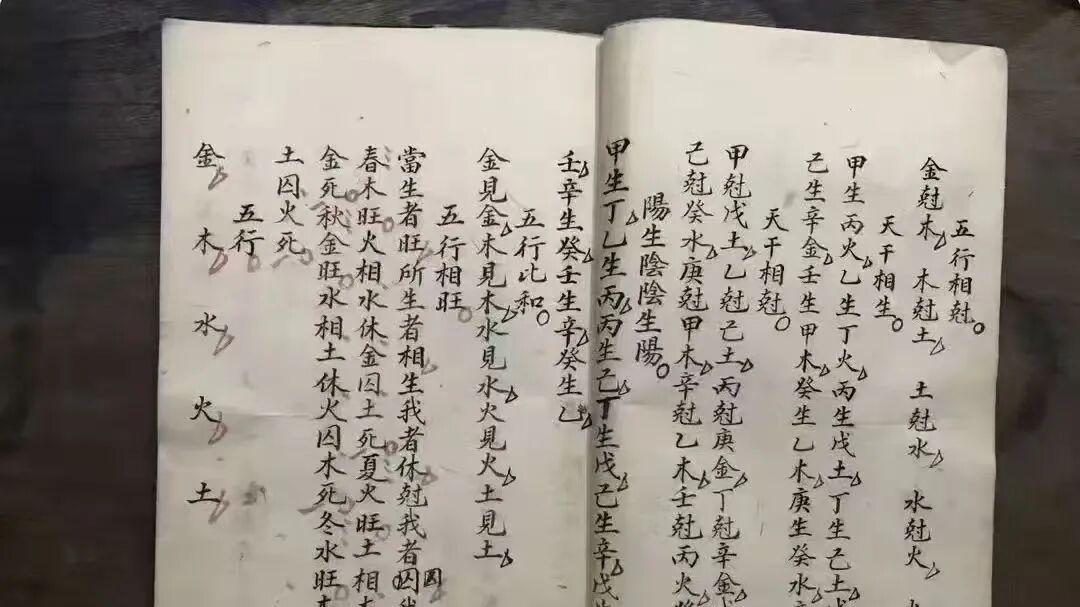 五行相尅
金尅木 木尅土 土尅水 水尅火
天干相生
甲生丙火乙生丁火丙生戊土丁生己土
己生辛金壬生甲木癸生乙木庚生癸水
天干相尅
甲尅戊土乙尅己土丙尅庚金丁尅辛金
己尅癸水庚尅甲木辛尅乙木壬尅丙火
陽生陰陰生陽
甲生丁乙生丙丙生己丁生戊己生辛戊
壬辛生癸壬生辛癸生乙
五行比和
金見金木見木水見水火見火土見土
五行相旺
當生者旺所生者相生我者休尅我者囚囚
春木旺火相水休金囚土死夏火旺土相
金死秋金旺水相土休火囚木死冬水旺
土囚火死
五行
金 木 水 火 土